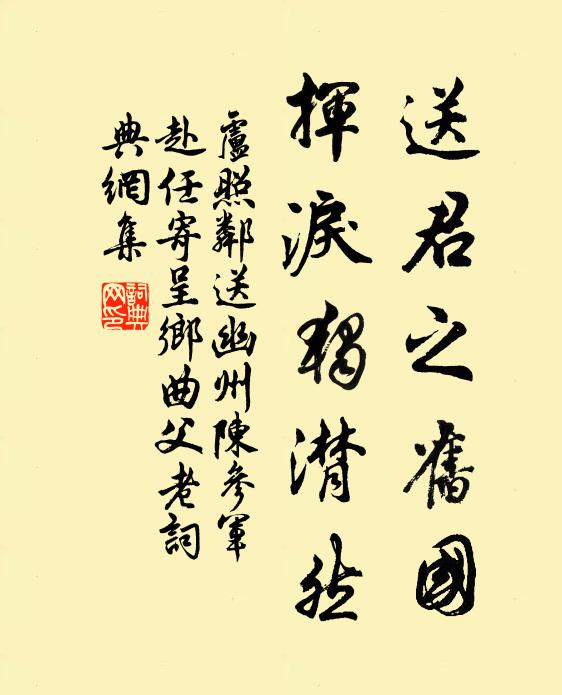 送君之舊國
揮淚獨潸然
盧照鄰送幽州陳參軍
赴任寄呈鄉曲父老詞
典網集
詞典網印